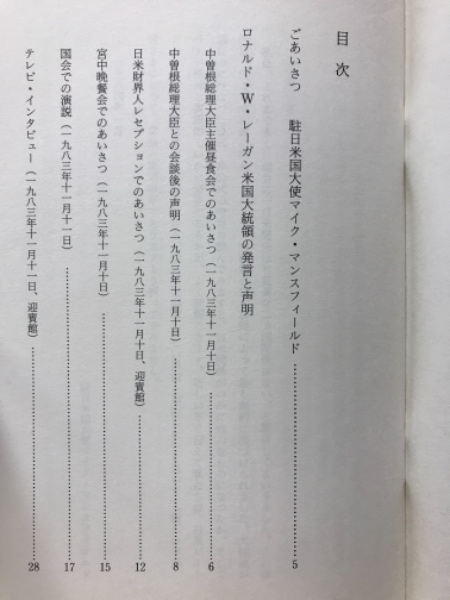 目次
ごあいさつ　駐日米国大使マイク・マンスフィールド……………5
ロナルド・W・レーガン米国大統領の発言と声明
中曽根総理大臣主催昼食会でのあいさつ（一九八三年十一月十日）……………6
中曽根総理大臣との会談後の声明（一九八三年十一月十日）……………8
日米財界人レセプションでのあいさつ（一九八三年十一月十日、迎賓館）……………12
宮中晩餐会でのあいさつ（一九八三年十一月十日）……………15
国会での演説（一九八三年十一月十一日）……………17
テレビ・インタビュー（一九八三年十一月十一日、迎賓館）……………28